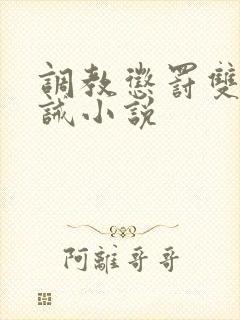 調教懲罰雙
誡小說
阿離哥哥